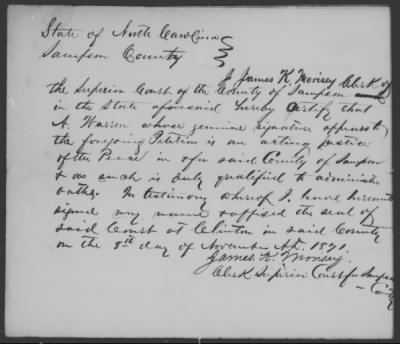 State of North Carolina
Sampson County
I James K Morisey Clerk of
the Superior Court of the County of Sampson and
in the State aforesaid hereby certify that
A. Warren whose genuine signature appears to
the foregoing Petition is an acting Justice
of the Peace in & for said County of Sampson
& as such is duly qualified to administer
oaths. In testimony whereof I have hereunto
signed my name & affixed the seal of
said Court at Clinton in said County
on the 8th day of November A.D. 1871.
James K. Morisey
Clerk Superior Court for Sampson
County